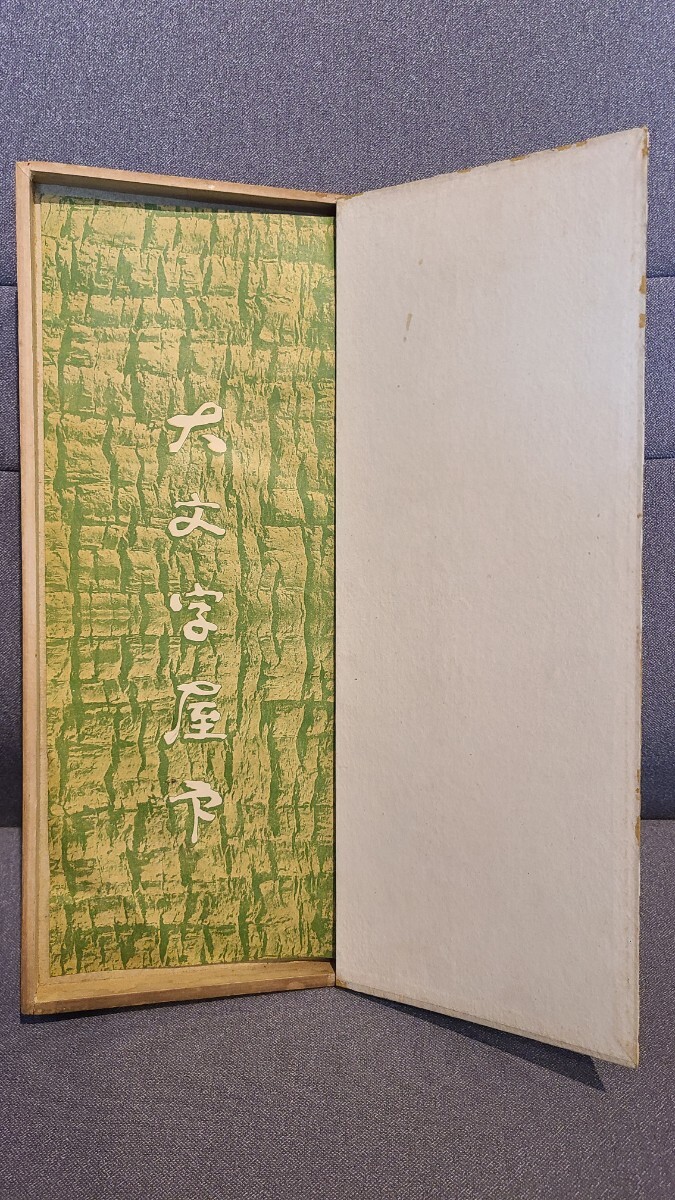 大文字屋